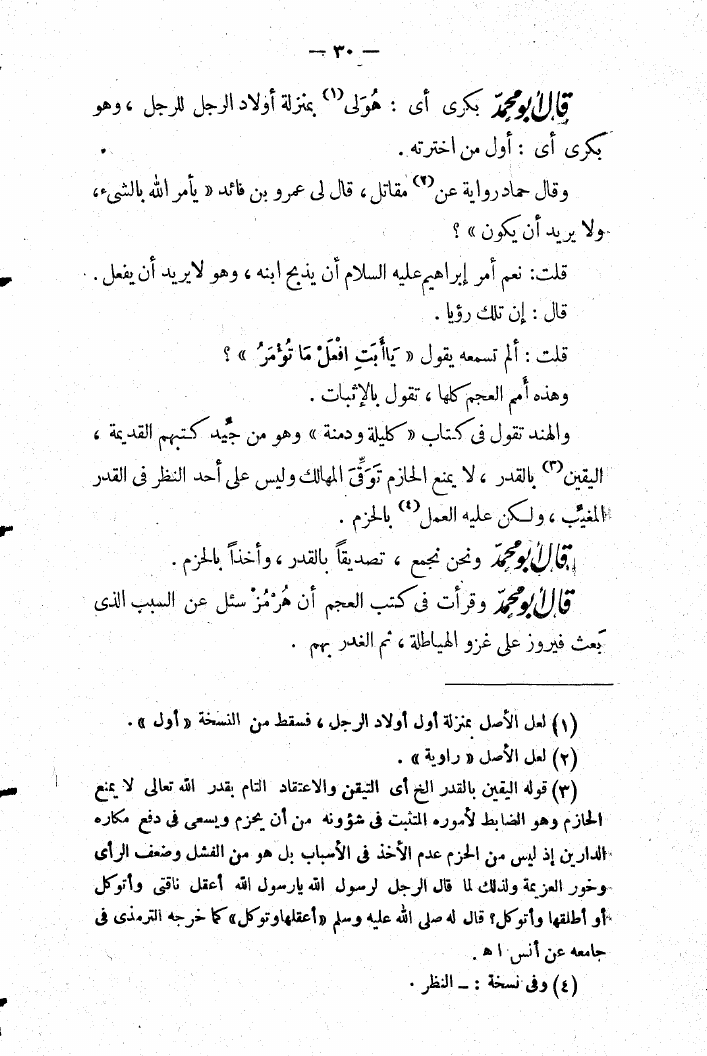 — ٣٠ —
قال أبو محمد بكرى أى : هُوَلى(١) بمنزلة أولاد الرجل للرجل ، وهو
بكرى أى : أول من اخترته .
وقال حماد رواية عن(٢) مقاتل ، قال لى عمرو بن فائد « يأمر الله بالشىء،
ولا يريد أن يكون » ؟
قلت: نعم أمر إبراهيم عليه السلام أن يذبح ابنه ، وهو لا يريد أن يفعل .
قال : إن تلك رؤيا .
قلت : ألم تسمعه يقول « يَاأَبَتِ افْعَلْ مَا تُؤْمَرُ » ؟
وهذه أمم العجم كلها ، تقول بالإثبات .
والهند تقول فى كتاب « كليلة ودمنة » وهو من جَيِّد كتبهم القديمة ،
اليقين(٣) بالقدر ، لا يمنع الحازم تَوَقِّىَ المهالك وليس على أحد النظر فى القدر
المغيَّب ، ولكن عليه العمل(٤) بالحزم .
قال أبو محمد ونحن نجمع ، تصديقاً بالقدر ، وأخذاً بالحزم .
قال أبو محمد وقرأت فى كتب العجم أن هُرْمُزْ سئل عن السبب الذى
بَعث فيروز على غزو الهياطلة ، ثم الغدر بهم .
(١) لعل الأصل بمنزلة أول أولاد الرجل ، فسقط من النسخة « أول » .
(٢) لعل الأصل « راوية » .
(٣) قوله اليقين بالقدر الخ أى التيقن والاعتقاد التام بقدر الله تعالى لا يمنع
الحازم وهو الضابط لأموره المتثبت فى شؤونه من أن يحزم ويسعى فى دفع مكاره
الدارين إذ ليس من الحزم عدم الأخذ فى الأسباب بل هو من الفشل وضعف الرأى
وخور العزيمة ولذلك لما قال الرجل لرسول الله يارسول الله أعقل ناقتى وأتوكل
أو أطلقها وأتوكل؟ قال له صلى الله عليه وسلم «أعقلها وتوكل» كما خرجه الترمذى فى
جامعه عن أنس ا ه .
(٤) وفى نسخة : ــ النظر .